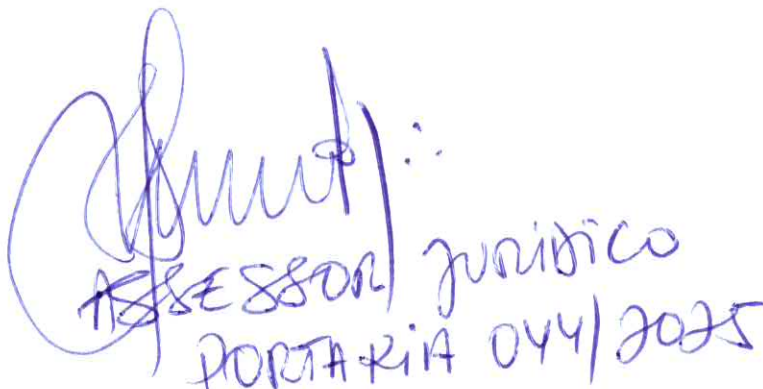 ASSESSOR JURÍDICO
PORTARIA 044/2025